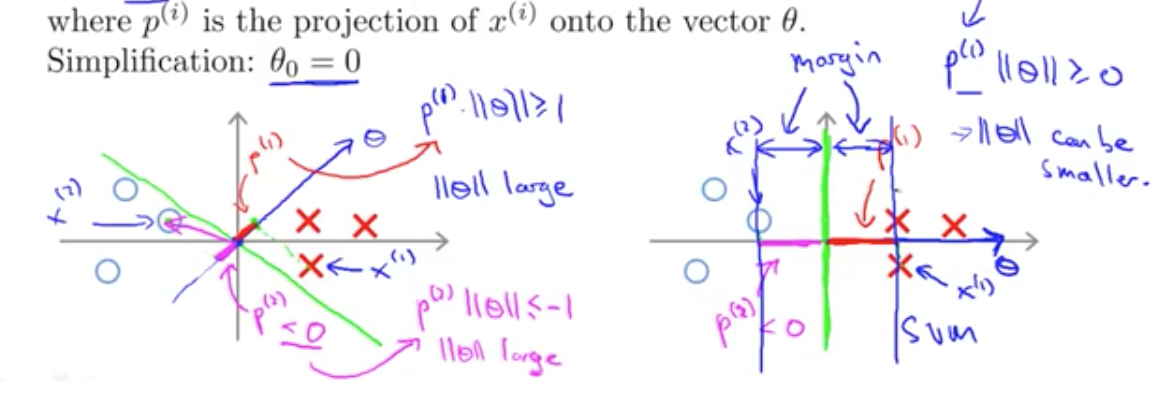 where p^(i) is the projection of x^(i) onto the vector θ.
Simplification: θ₀ = 0
p^(1)
θ
p^(1)·||θ|| ≥ 1
||θ|| large
x^(2)
x^(1)
p^(2) < 0
p^(2) ||θ|| ≤ -1
||θ|| large
margin
p^(1) ||θ|| ≥ 0
→ ||θ|| can be
smaller.
x^(2)
p^(1)
θ
x^(1)
p^(2) < 0
SVM